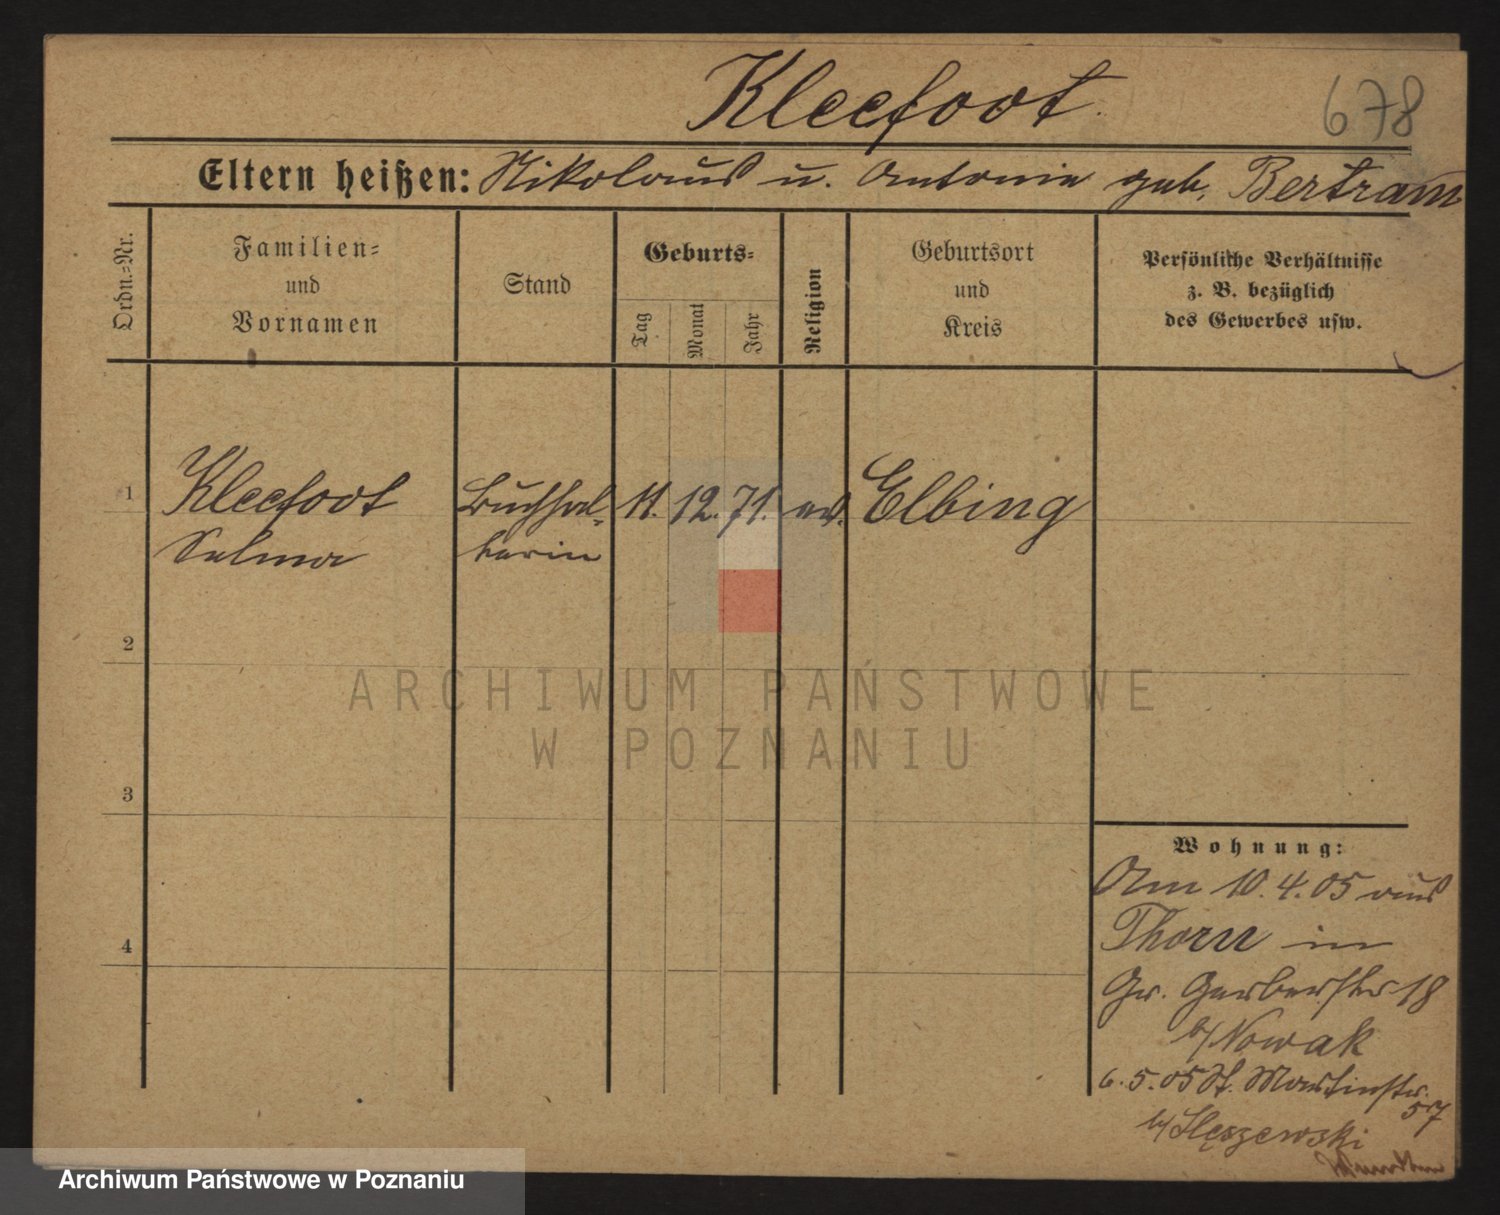 Kleefoot
678
Eltern heißen: Nikolaus u. Antonie geb. Bertram
Ordn.-Nr.
Familien-
und
Vornamen
Stand
Geburts-
Tag
Monat
Jahr
Religion
Geburtsort
und
Kreis
Persönliche Verhältnisse
z. B. bezüglich
des Gewerbes usw.
1
Kleefoot
Selma
Buchhal-
terin
11. 12. 71.
ev.
Elbing
2
3
4
Wohnung:
Am 10.4.05 aus
Thorn in
Gr. Gerberstr 18
b/ Nowak
6.5.05 St. Martinstr.
57
b/ Slęszewski
ARCHIWUM PAŃSTWOWE
W POZNANIU
Archiwum Państwowe w Poznaniu